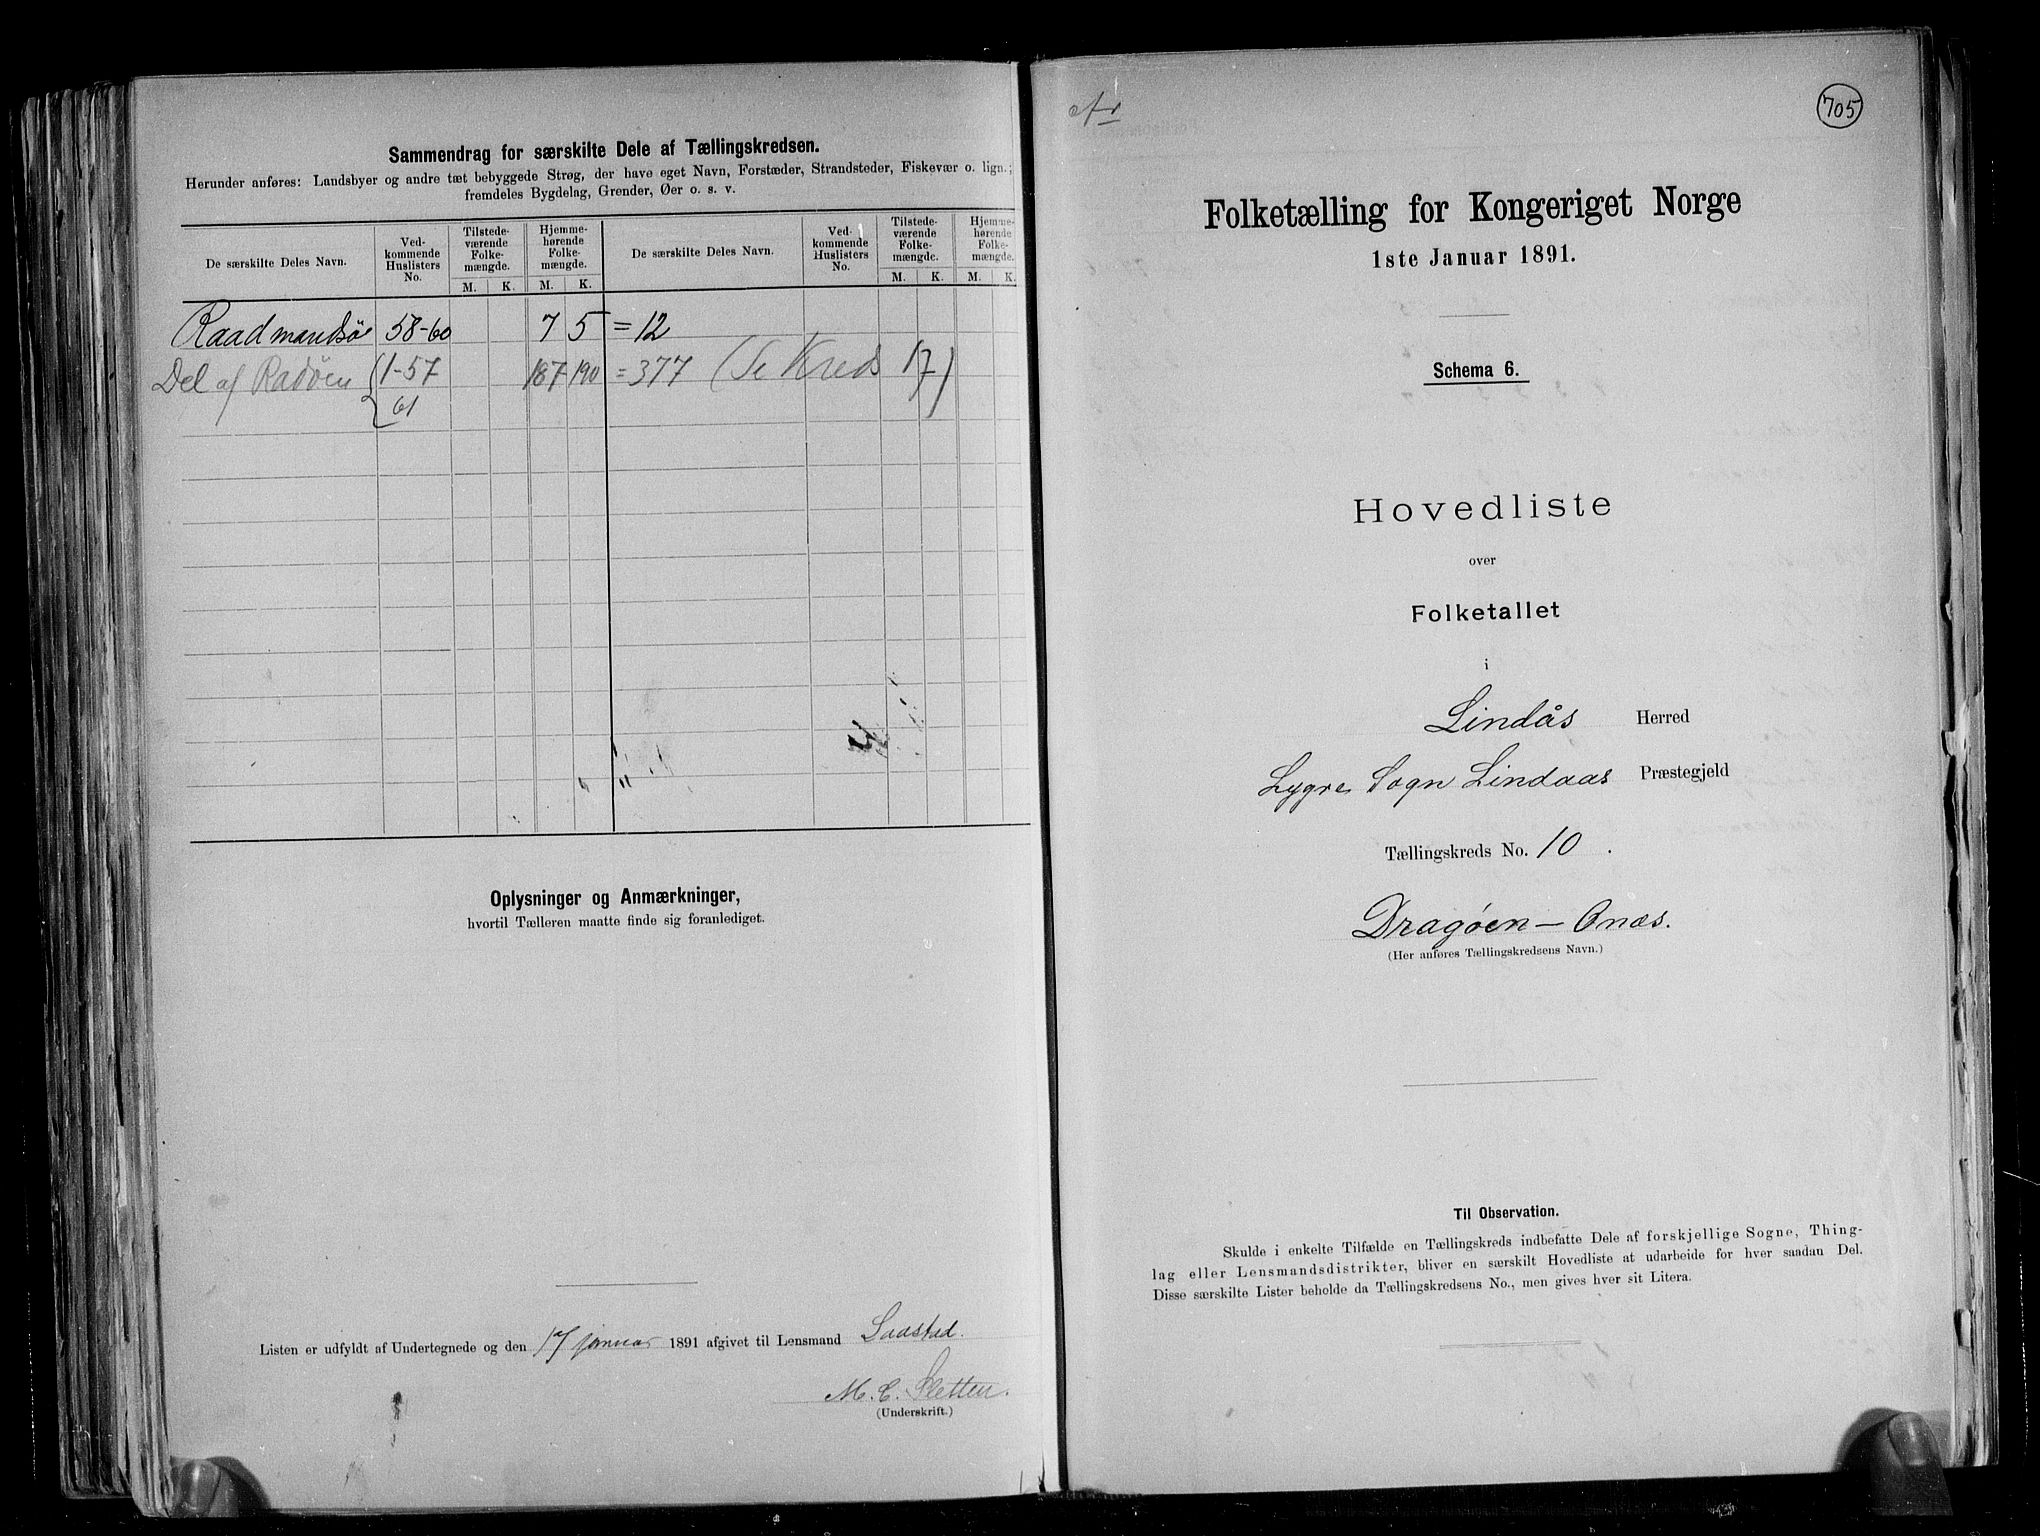 Sammendrag for særskilte Dele af Tællingskredsen.
Herunder anføres: Landsbyer og andre tæt bebyggede Strøg, der have eget Navn, Forstæder, Strandsteder, Fiskevær o. lign.;
fremdeles Bygdelag, Grender, Øer o. s. v.
De særskilte Deles Navn. Ved-kommende Huslisters No. Tilstede-værende Folke-mængde. Hjemme-hørende Folke-mængde. De særskilte Deles Navn. Ved-kommende Huslisters No. Tilstede-værende Folke-mængde. Hjemme-hørende Folke-mængde.
M. K. M. K. M. K. M. K.
Raadmandsø 58-60 7 5 = 12
Del af Radøen { 1-57 187 190 = 377 (Se Kreds 17)
61
Oplysninger og Anmærkninger,
hvortil Tælleren maatte finde sig foranlediget.
Listen er udfyldt af Undertegnede og den 17 januar 1891 afgivet til Lensmand Saastad.
M. C. Sletten.
(Underskrift.)
705
Folketælling for Kongeriget Norge
1ste Januar 1891.
Schema 6.
Hovedliste
over
Folketallet
i
Lindås Herred
Lygre Sogn Lindaas Præstegjeld
Tællingskreds No. 10.
Dragøen - Onæs.
(Her anføres Tællingskredsens Navn.)
Til Observation.
Skulde i enkelte Tilfælde en Tællingskreds indbefatte Dele af forskjellige Sogne, Thing-
lag eller Lensmandsdistrikter, bliver en særskilt Hovedliste at udarbeide for hver saadan Del.
Disse særskilte Lister beholde da Tællingskredsens No., men gives hver sit Litera.